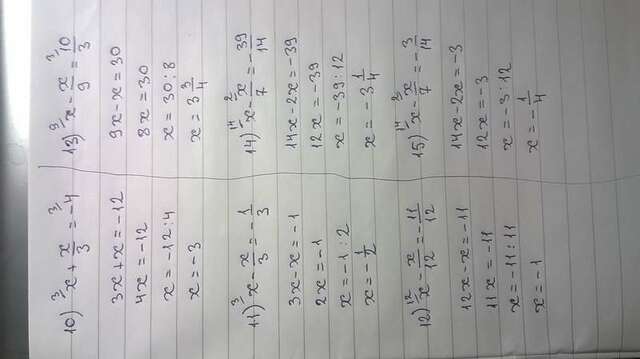 10) ³x + x/3 = ³-4
3x + x = -12
4x = -12
x = -12 : 4
x = -3
11) ³x - x/3 = -1/3
3x - x = -1
2x = -1
x = -1 : 2
x = -1/2
12) ¹²x - x/12 = -11/12
12x - x = -11
11x = -11
x = -11 : 11
x = -1
13) ⁹x - x/9 = ³10/3
9x - x = 30
8x = 30
x = 30 : 8
x = 3 3/4
14) ¹⁴x - ²x/7 = -39/14
14x - 2x = -39
12x = -39
x = -39 : 12
x = -3 1/4
15) ¹⁴x - ²x/7 = -3/14
14x - 2x = -3
12x = -3
x = -3 : 12
x = -1/4